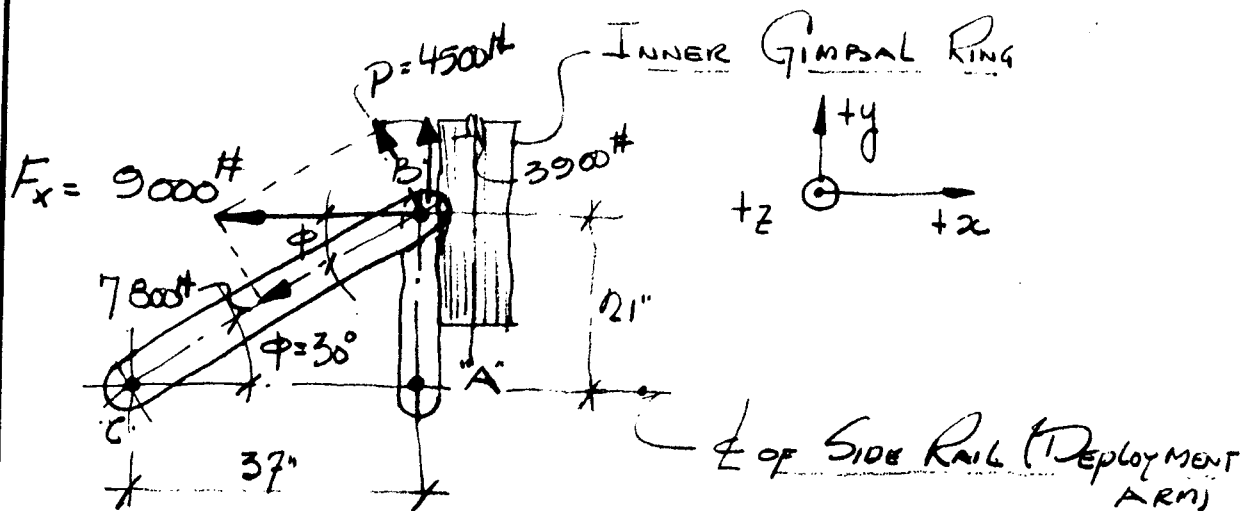 INNER GIMBAL RING
P=4500#
+y
Fx = 9000#
"B"
3900#
+z
+x
φ
7800#
φ=30°
21"
"A"
"C"
37"
℄ OF SIDE RAIL (DEPLOYMENT
ARM)